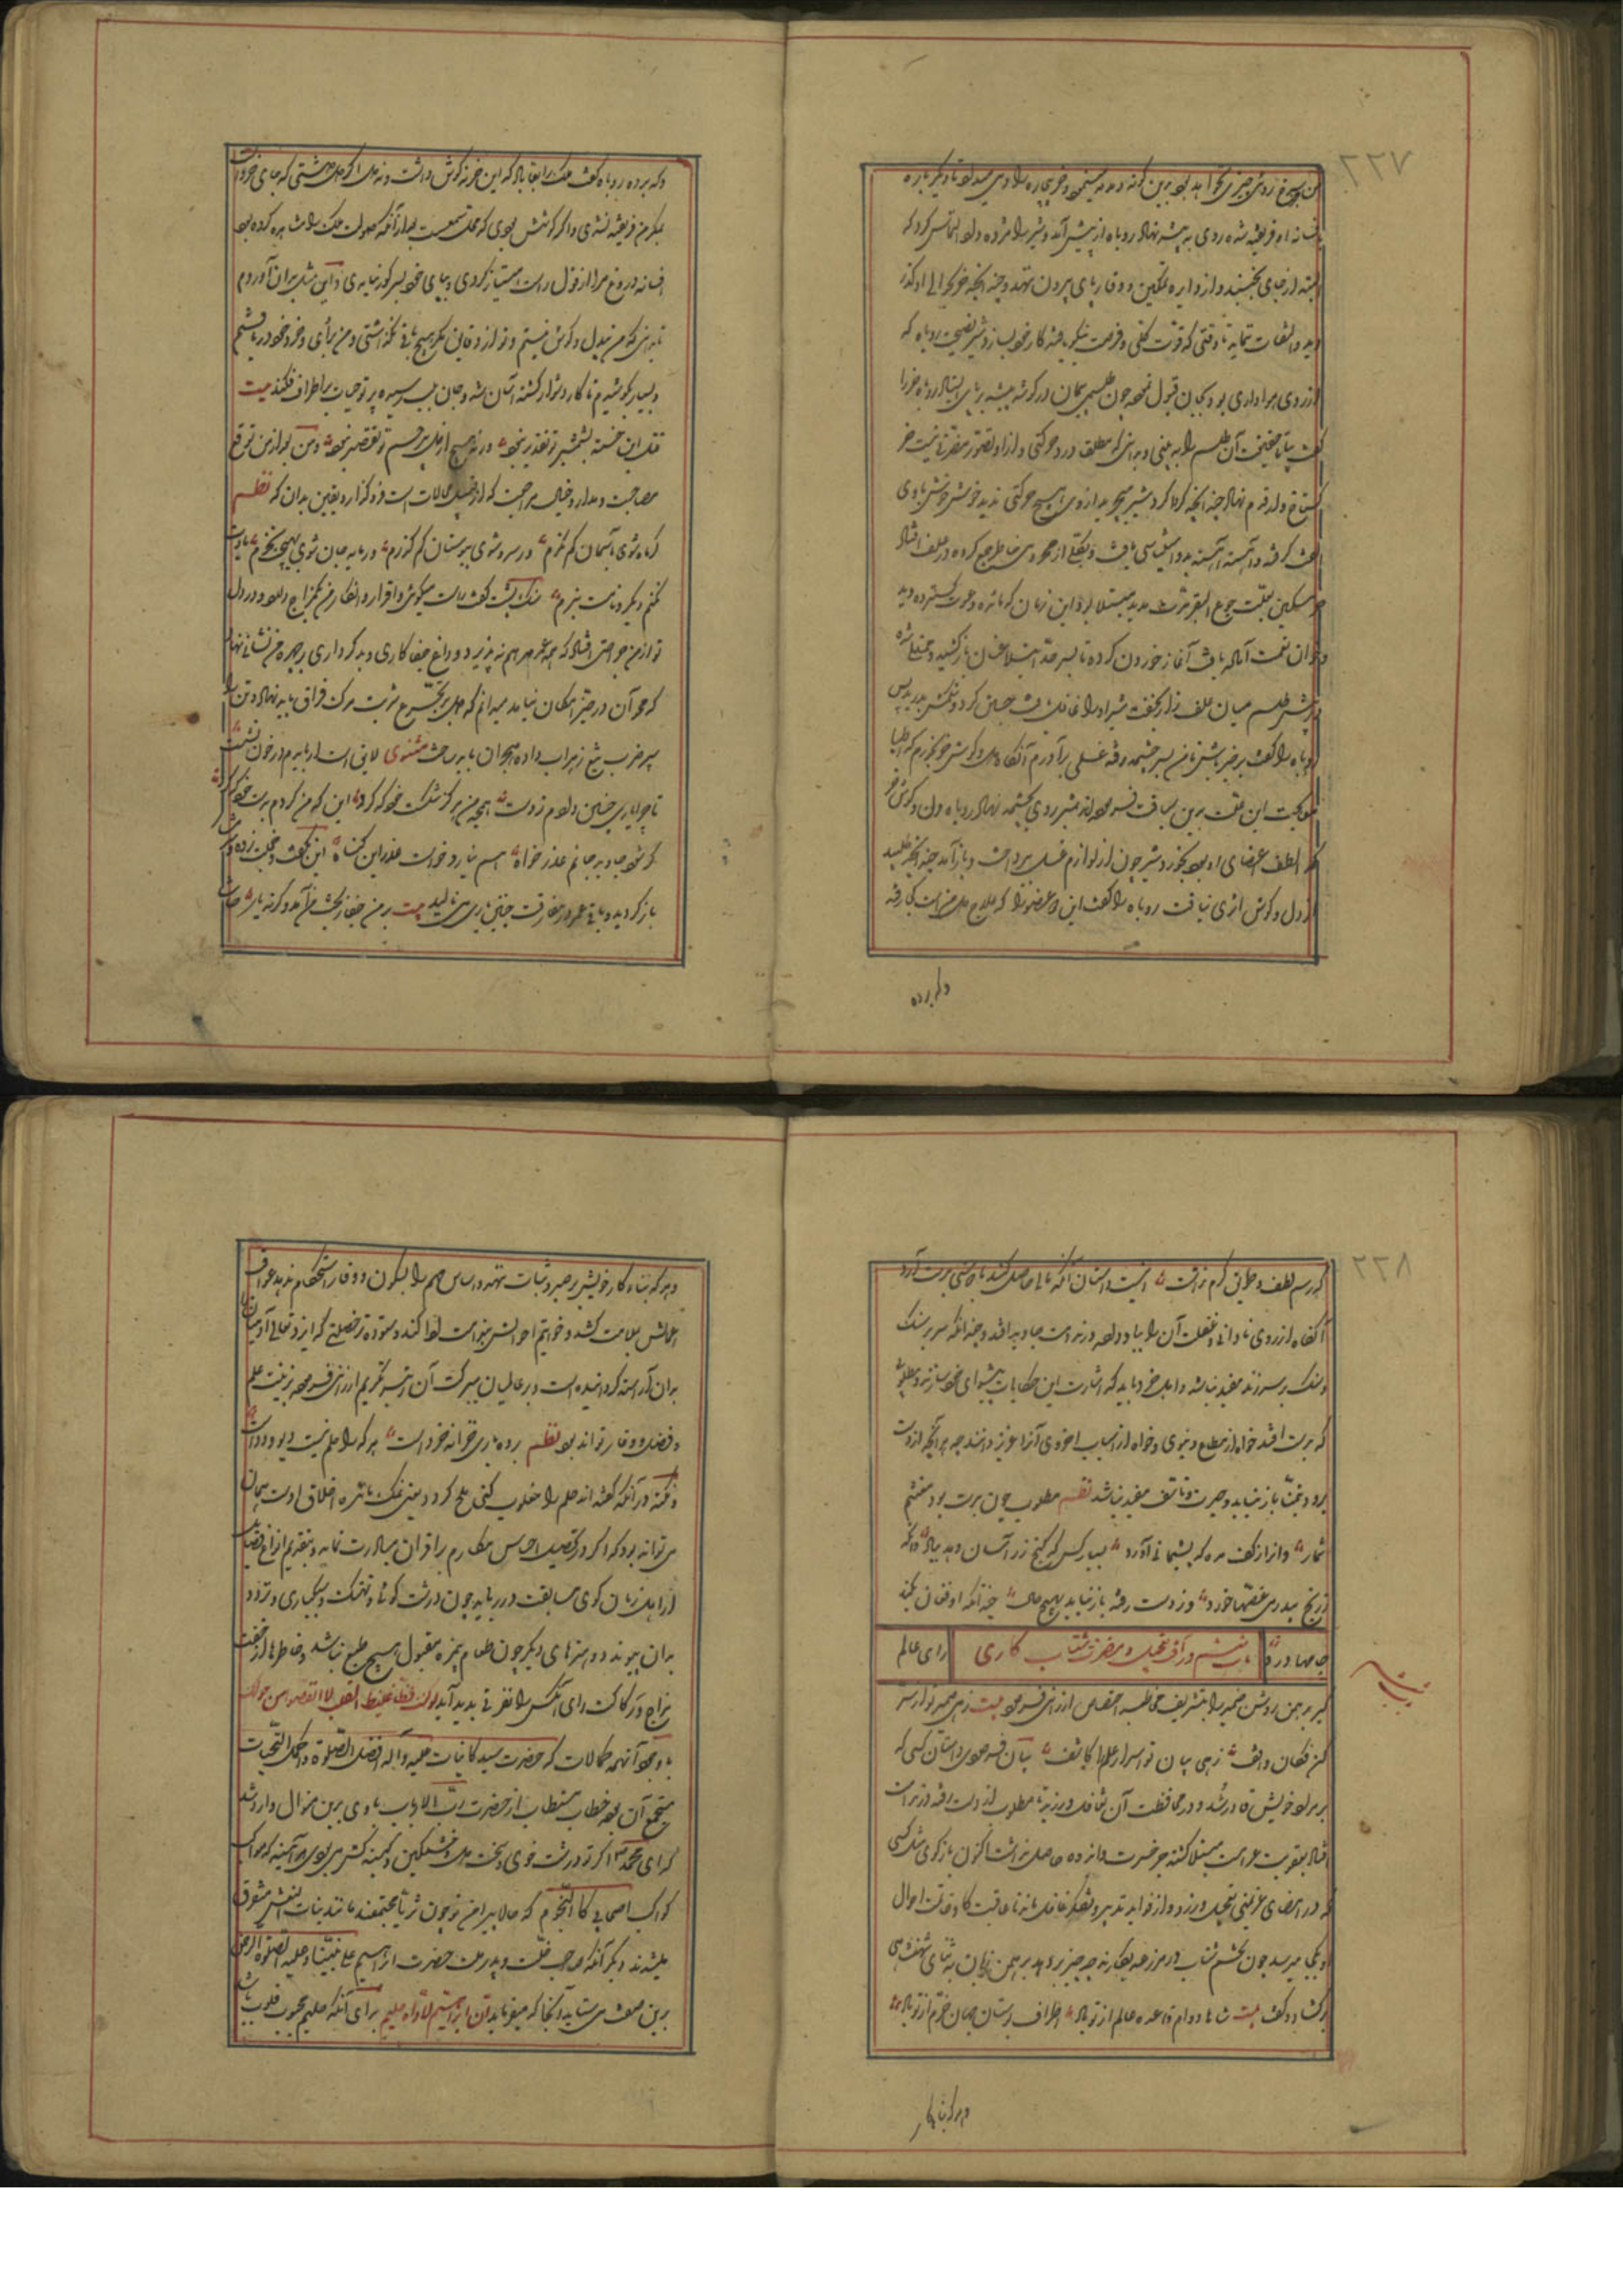 ۲۲۷
افسانه او فریفته شده روی به بیشه نهاد روباه از پیش آمد و شیر را مژده داد و التماس کرد که
البته از جای نجنبد و از دایره تمکین و وقار پای بیرون ننهد و چندانکه خر بحوالی او گذرد
و التفات ننماید تا وقتی که قوت و فرصت نیکو یافته کار خود بسازد شیر نصیحت روباه که
از روی هواداری بود بجان قبول نمود چون طلسمی بیجان در گوشه بیشه بر پای ایستاد روباه خر را
گفت بیا تا حقیقت آن طلسم را به بینی و بدانی که مطلقا درو حرکتی و ازو تصور مضرتی نیست خر
گستاخ وار قدم نهاد چندانکه گرد شیر میچرید ازوی هیچ حرکتی ندید
گرفته و آهسته آهسته بدو استیناسی یافت و بکلی از جمع کرده در علف افتاد
مسکین بعلت جوع البقر مدتی مدید مبتلا بود این زمان که مائده دعوت گسترده دید
و خوان نعمت آماده یافت آغاز خوردن کرده تا بسر حد امتلا عنان باز نکشید
پیش طلسم میان علف زار بخفت شیر او را غافل یافت جستی کرد و شکمش بدرید پس
روباه را گفت برخیز باش تا من بسر چشمه رفته غسلی برآورم آنگاه دل و گوش خر بخورم که اطبا
معالجت این علت برین سیاقت فرموده‌اند شیر روی بچشمه نهاد روباه دل و گوش خر
که الطف اعضای او بود بخورد شیر چون از لوازم غسل پرداخت و باز آمد چندانکه طلبید
از دل و گوش اثری نیافت روباه را گفت این دو عضو را که علاج من است کجا رفته
و که برده
و که برده روباه گفت ملک را بقا باد که این خر نه گوش داشت و نه دل اگر دل داشتی که جای خرد است
بمکر من فریفته نشدی و اگر گوشش بودی که محل سمعست بعد از آنکه صولت ملک را مشاهده کرده بود
افسانه دروغ مرا از قول راست امتیاز کردی و بپای خود بسر گور نیامدی و این مثل بدان آوردم
تا بدانی که من بیدل و گوش نیستم و تو از دقایق مکر هیچ باقی نگذاشتی و من برأی و خرد خود دریافتم
و بسیار بکوشیدم تا کار دشوار گشته آسان شد و جان بلب رسیده پرتو حیات بر اطراف فکند بیت
قتل این خسته بشمشیر تو تقدیر نبود ورنه هیچ از دل بیرحم تو تقصیر نبود و من بعد از من توقع
مصاحبت مدار و خیال مراجعت که از قبیل محالات است فرو گذار و یقین بدان که نظم
گر ماه شوی بآسمان کم نگرم ور سرو شوی ببوستان کم گذرم ور مایه جان شوی بهیچت نخرم یادت
نکنم دگر و نامت نبرم سنگ پشت گفت راست میگوئی و اقرار و انکار من یکمزاج دارد و در دل
تو از من جراحتی افتاد که همه عمر مرهم نه پذیرد و داغ جفا کاری و بد کرداری بر چهره من نشانی نهاد
که محو آن در حیز امکان نیاید میدانم که دل بر تجرع شربت مرگ فراق باید نهاد و تن را
سپر ضرب تیغ زهراب داده هجران باید ساخت مثنوی لایق است ار بایدم در خون نشست
تا چرا یاری چنین دادم ز دست هیچ من سرگشته خود که کرد این که من کردم بدست خود که کرد
گر شود جاوید جانم عذر خواه هم نیارد خواست عذر این گناه این بگفت و خجلت زده
باز گردید و باقی عمر در مفارقت چنین یاری می‌نالید بیت
۲۲۸
که رسم لطف و جای کرم نداشت اینست داستان آنکه مالی حاصل کند یا دوستی بدست آرد
آنگاه از روی نادانی و غفلت آن را بباد دهد و در ندامت جاوید افتد و چندانکه سر بر سنگ
و سنگ بر سر زند مفید نباشد و اهل خرد باید که اشارت این حکایات پیشوای خود سازند و مطلوبی
که بدست افتد خواه از مطامع دنیوی و خواه از اسباب اخروی آنرا عزیز دانند چه هر آنچه از دست
برود بتمنا باز نیاید و حسرت و تأسف مفید نباشد نظم مطلوب چون بدست بود مغتنم
شمار وانرا ز کف مده که پشیمانی آورد بسیار کس که گنج زر آسان دهد بباد وانگه
ز رنج بیدرمی غصها خورد وز دست رفته باز نیاید بهیچ حال چندانکه او فغان بکند
جامها درد
باب ششم در آفت تعجیل و مضرت شتاب کاری
رای عالم
گیر برهمن روشن ضمیر را بتشریف مخاطبه اختصاص ارزانی فرمود بیت زهی ضمیر تو از سر
کن فکان واقف زهی بیان تو اسرار علم را کاشف بیان فرمودی داستان کسی که
بر مراد خویش قادر شد و در محافظت آن تغافل ورزید تا مطلوب از دست رفته در ندامت
افتاد بعقوبت غرامت مبتلا گشته جز حسرت و اندوه حاصل نداشت اکنون باز گوی مثل کسی
که در امضای عزیمتی تعجیل ورزد و از فواید تدبر و تفکر غافل ماند تا عاقبت کار و خاتمت احوال
او بکجا میرسد چون تخم شتاب در مزرعه بکارند چه چیز بر دهد برهمن زبان به ثنای شهنشاهی
بر گشاد و گفت بیت شاها دوام قاعده عالم از تو باد اطراف بوستان جهان خرم از تو باد
و هر که بناء کار
و هر که بناء کار خویش بر صبر و ثبات ننهد و اساس مهم را بسکون و وقار استحکام ندهد عواقب
اعمالش بملامت کشد و خواتیم احوالش بندامت ادا کند و ستوده‌تر خصلتی که ایزد تعالی آدمیان
بدان آراسته گردانیده است و بر عالمیان ببرکت آن رتبه تکریم ارزانی فرموده زینت حلم
و فضل وقار تواند بود نظم بردباری خزانه خرد است هر که را حلم نیست دیو و دد است
و نکته در آنکه گفته‌اند حلم را مقلوب کنی ملح گردد یعنی نمک مائده اخلاق اوست بیان
می‌تواند بود که اگر در تحصیل اجناس مکارم بر اقران مبادرت نماید و بتقدیم انواع فضایل
از اهل زمان گوی مسابقت در رباید چون درشت گوئی و تهتک و سبکباری و تزود
بدان پیوندد هنرهای دیگر چون طعام بی‌مزه مقبول هیچ طبع نباشد و خاطرها از خفت
مزاج و رکاکت رای آنکس را نفرتی پدید آید ولو کنت فظا غلیظ القلب لانفضوا من حولک
با وجود آنهمه کمالات که حضرت سید کاینات علیه و آله افضل الصلوة و اکمل التحیات
مستجمع آن بود خطاب مستطاب از حضرت رب الارباب باوی برین منوال وارد شد
که ای محمد اگر تو درشت خوی و سخت دل و خشمگین و کینه کش می بودی هر آینه کواکب
کواکب اصحابی کالنجوم که حالا پیرامن تو چون ثریا مجتمعند مانند بنات النعش متفرق
میشدند دیگر آنکه صاحب خلت و پدر ملت حضرت ابراهیم علی نبینا و علیه الصلوة الرحمن
برین صفت می‌ستاید آنجا که میفرماید ان ابراهیم لاواه حلیم برای آنکه حلیم محبوب قلوب باشد